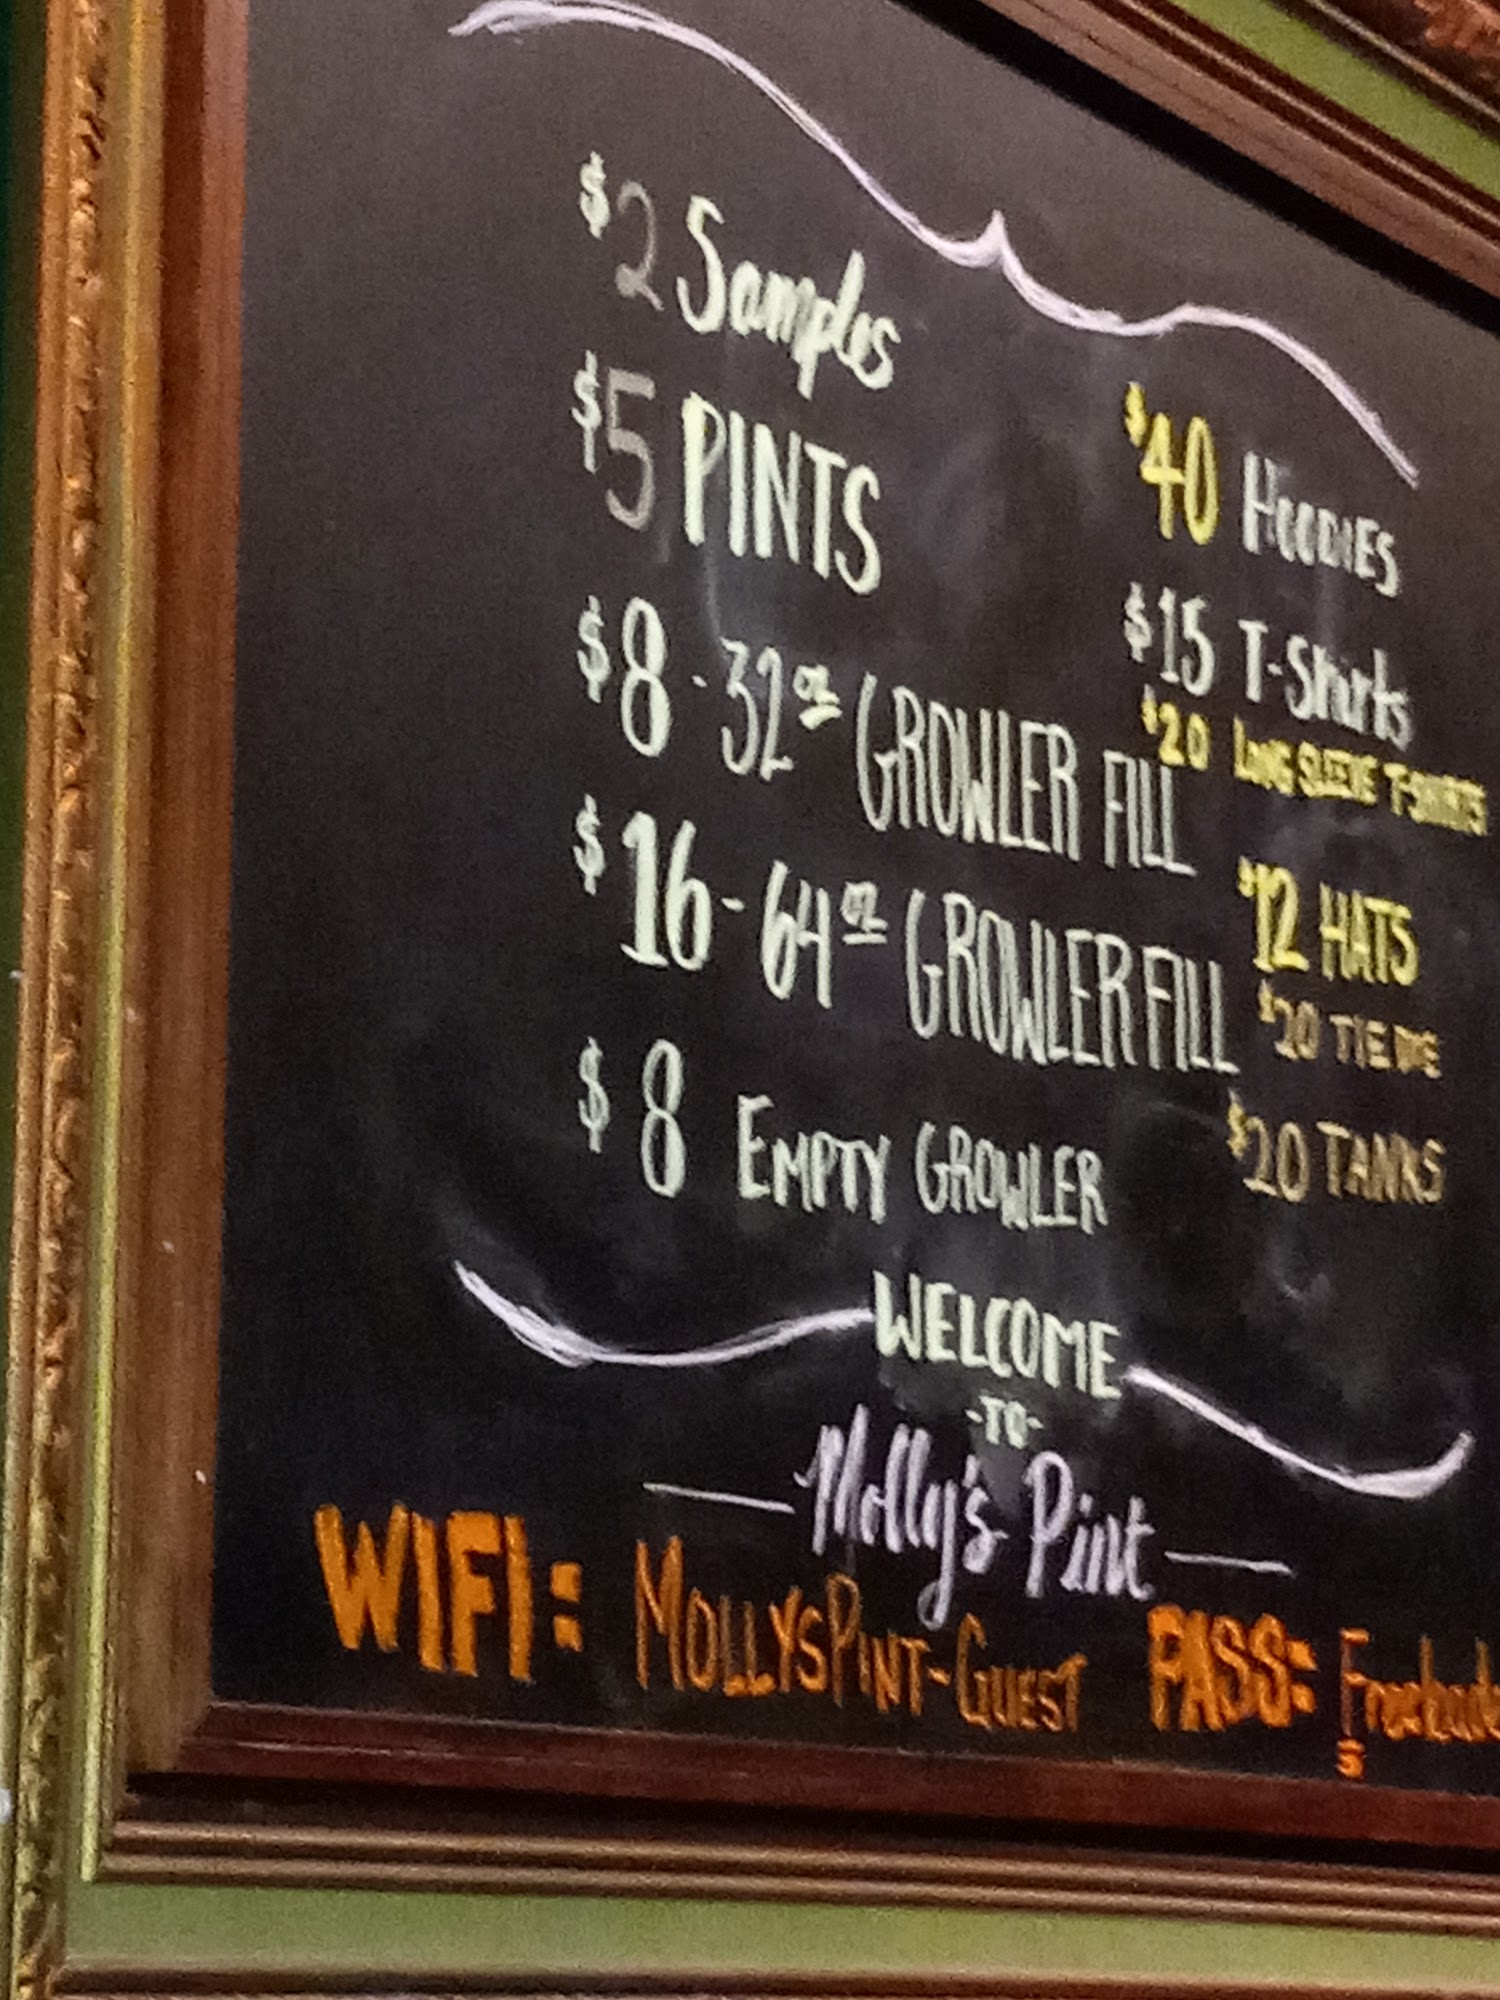 $2 Samples
$5 PINTS
$8 - 32oz GROWLER FILL
$16 - 64oz GROWLER FILL
$8 EMPTY GROWLER
$40 HOODIES
$15 T-Shirts
$20 LONG SLEEVE T-SHIRTS
$12 HATS
$20 TIE DIE
$20 TANKS
WELCOME
-TO-
Molly's Pint
WIFI: MOLLYSPINT-GUEST PASS: